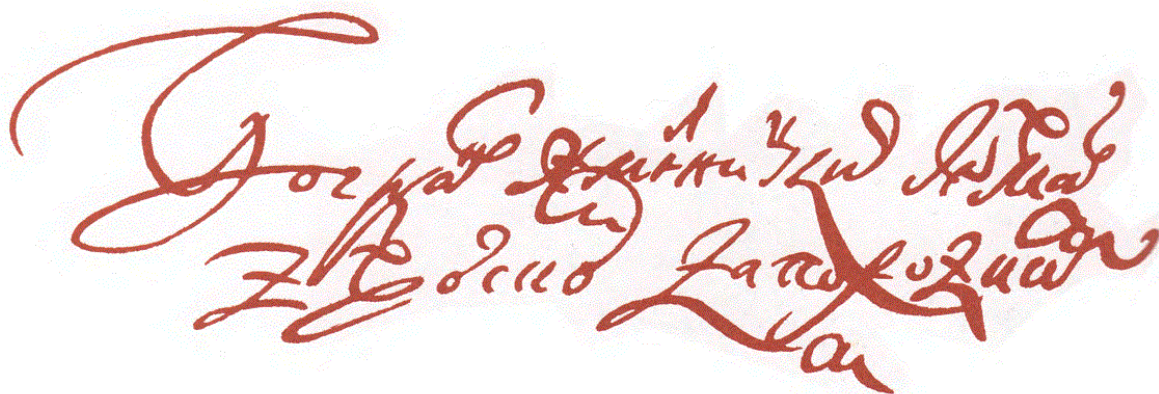 Богдан Хмелницкий Гетман
з Войском Запорозким